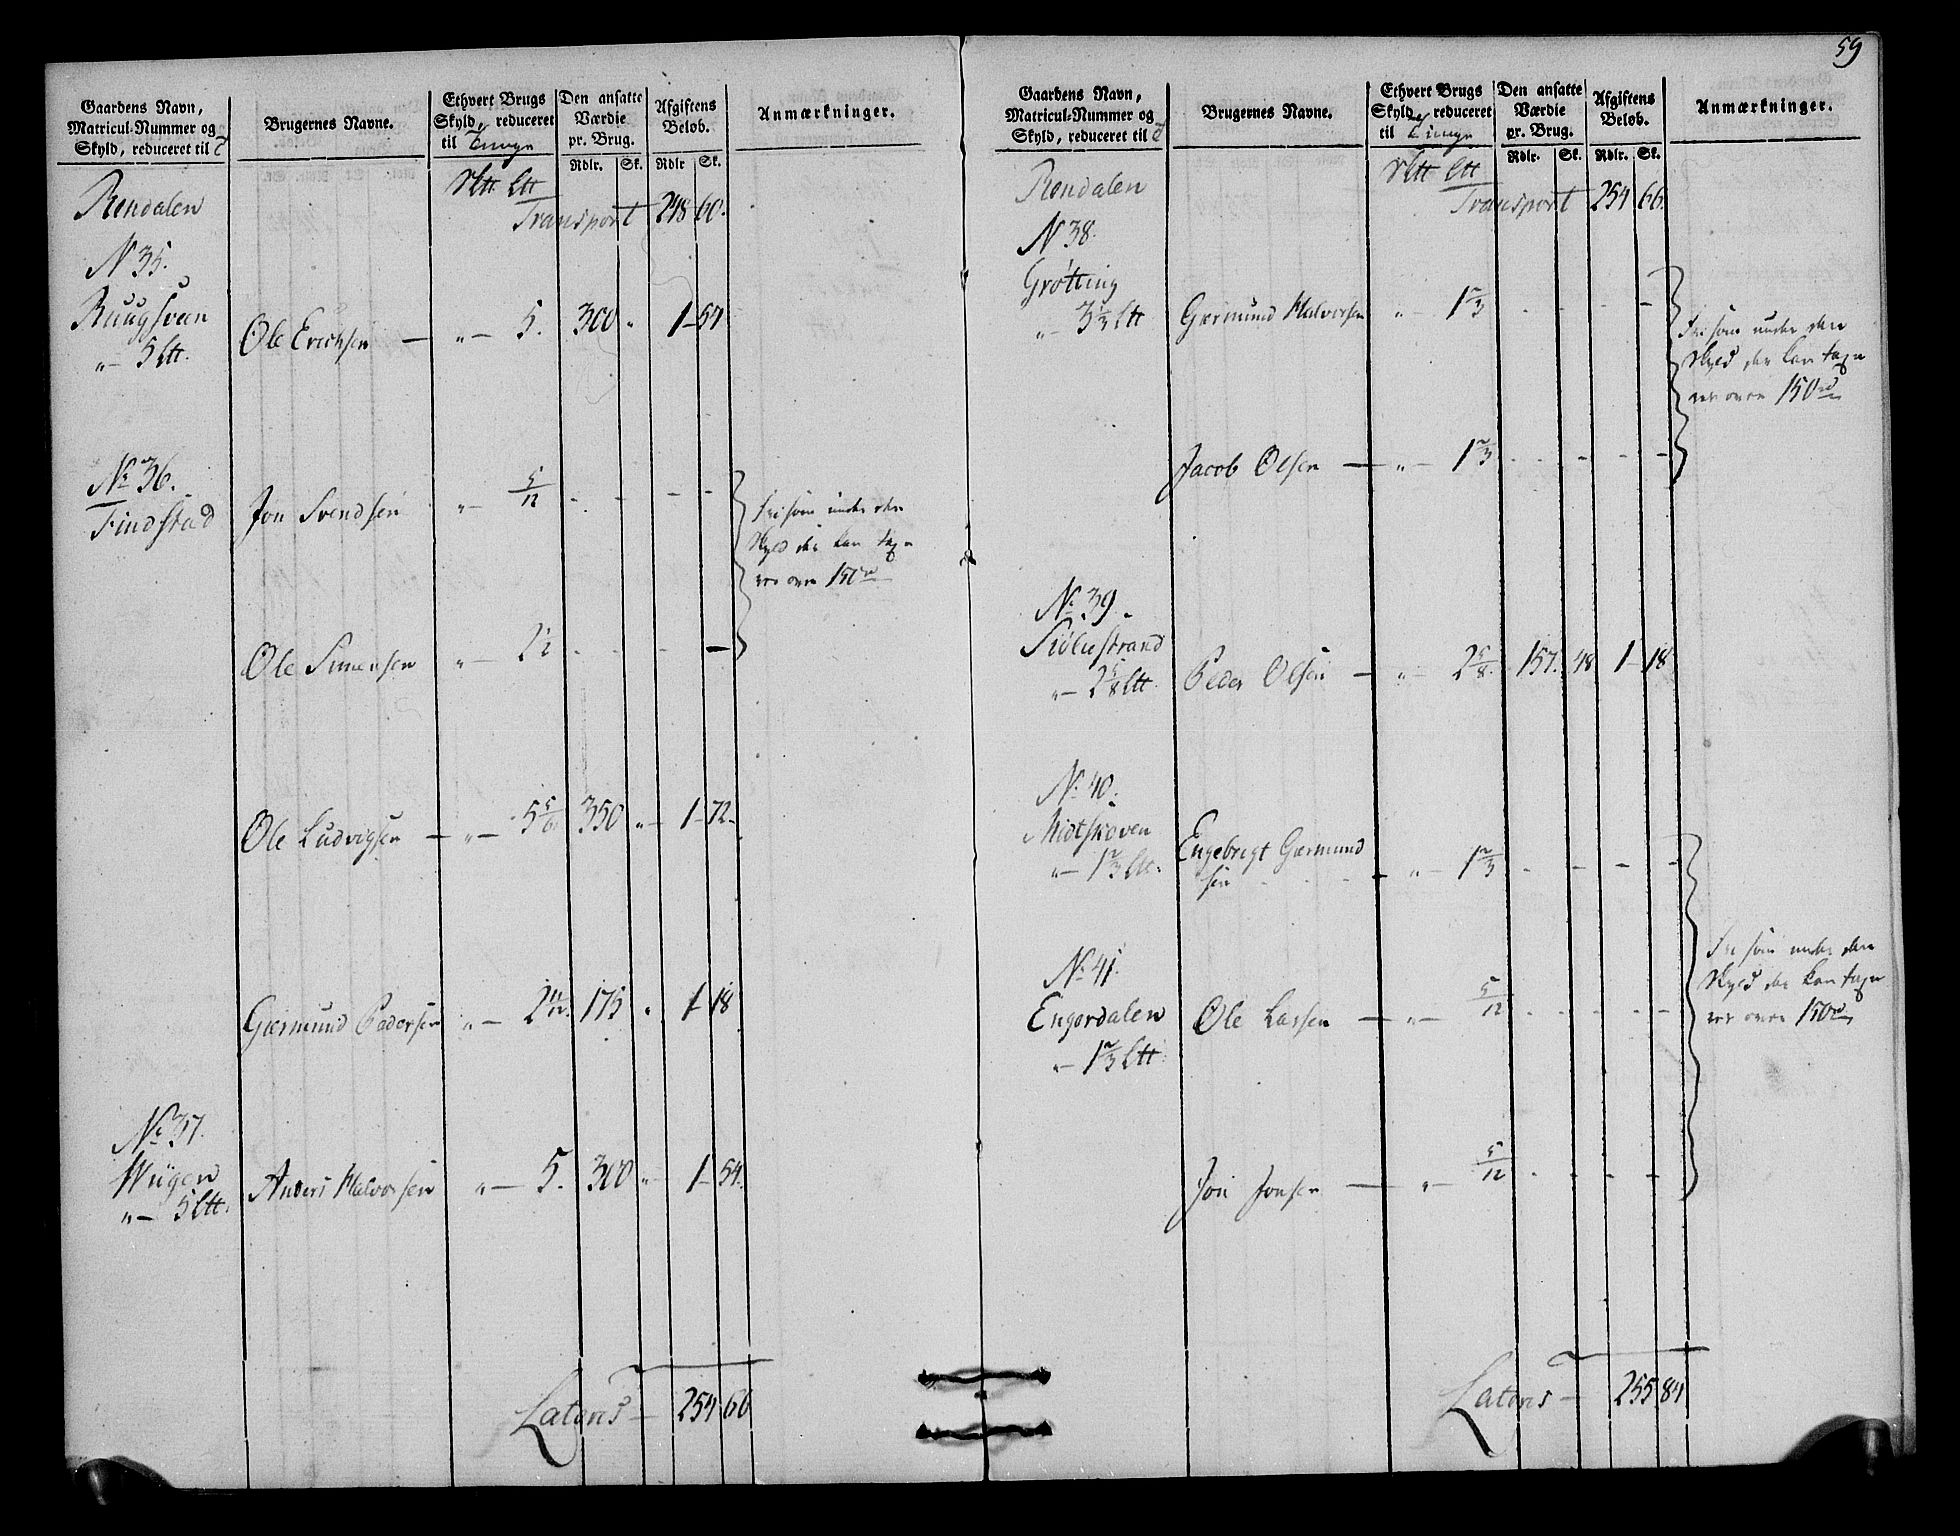 59
Gaardens Navn,
Matricul-Nummer og
Skyld, reduceret til
Brugernes Navne.
Ethvert Brugs
Skyld, reduceret
til Tunge
Den ansatte
Værdie
pr. Brug.
Rdlr. Sk.
Afgiftens
Beløb.
Rdlr Sk.
Anmærkninger.
Rendalen
Transport 248 60.
N 35.
Ruugsveen Ole Erichsen — „ — 5. 300 „ 1 — 54
„ — 5 Ltt.
No 36. Jon Svendsen „ — 5/12 - - - -
Findstad
Fri som under den
Skyld der kan taxe
res over 150 rd
Ole Simensen „ — 2 1/2 - - - —
Ole Ludvigsen — „ — 5 5/6 350 „ — 1 — 72 -
Gærmund Pedersen „ — 2 11/12. 175 „ 1 - 18
No 37.
Wiigen Anders Halvorsen „ — 5. 300 „ — 1 — 54.
„ — 5 Ltt.
Lateris — 254 66
Gaardens Navn,
Matricul-Nummer og
Skyld, reduceret til
Brugernes Navne.
Ethvert Brugs
Skyld, reduceret
til Tunge
Den ansatte
Værdie
pr. Brug.
Rdlr. Sk.
Afgiftens
Beløb.
Rdlr. Sk.
Anmærkninger.
Rendalen
Transport 254 66.
N 38.
Grøtting
„ — 3 1/3 Ltt Gærmund Halvorsen „ — 1 2/3 - - - —
Fri som under den
Skyld der kan taxe
res over 150 rd
Jacob Olsen — „ — 1 2/3 - - - —
No 39.
Siølliestrand
„ — 2 5/8 Ltt. Peder Olsen — „ — 2 5/8. 157. 48 1 — 18
No 40.
Midtskoven Engebregt Gærmund
„ — 1 2/3 Ltt. sen - - - „ — 1 2/3 - - - -
No 41.
Engerdalen Ole Larsen — „ — 5/12 - - - —
„ — 1 2/3 Ltt.
Fri som under den
Skyld der kan taxe
res over 150 rd
Jon Jonsen — „ — 5/12 - - - -
Lateris — 255 84